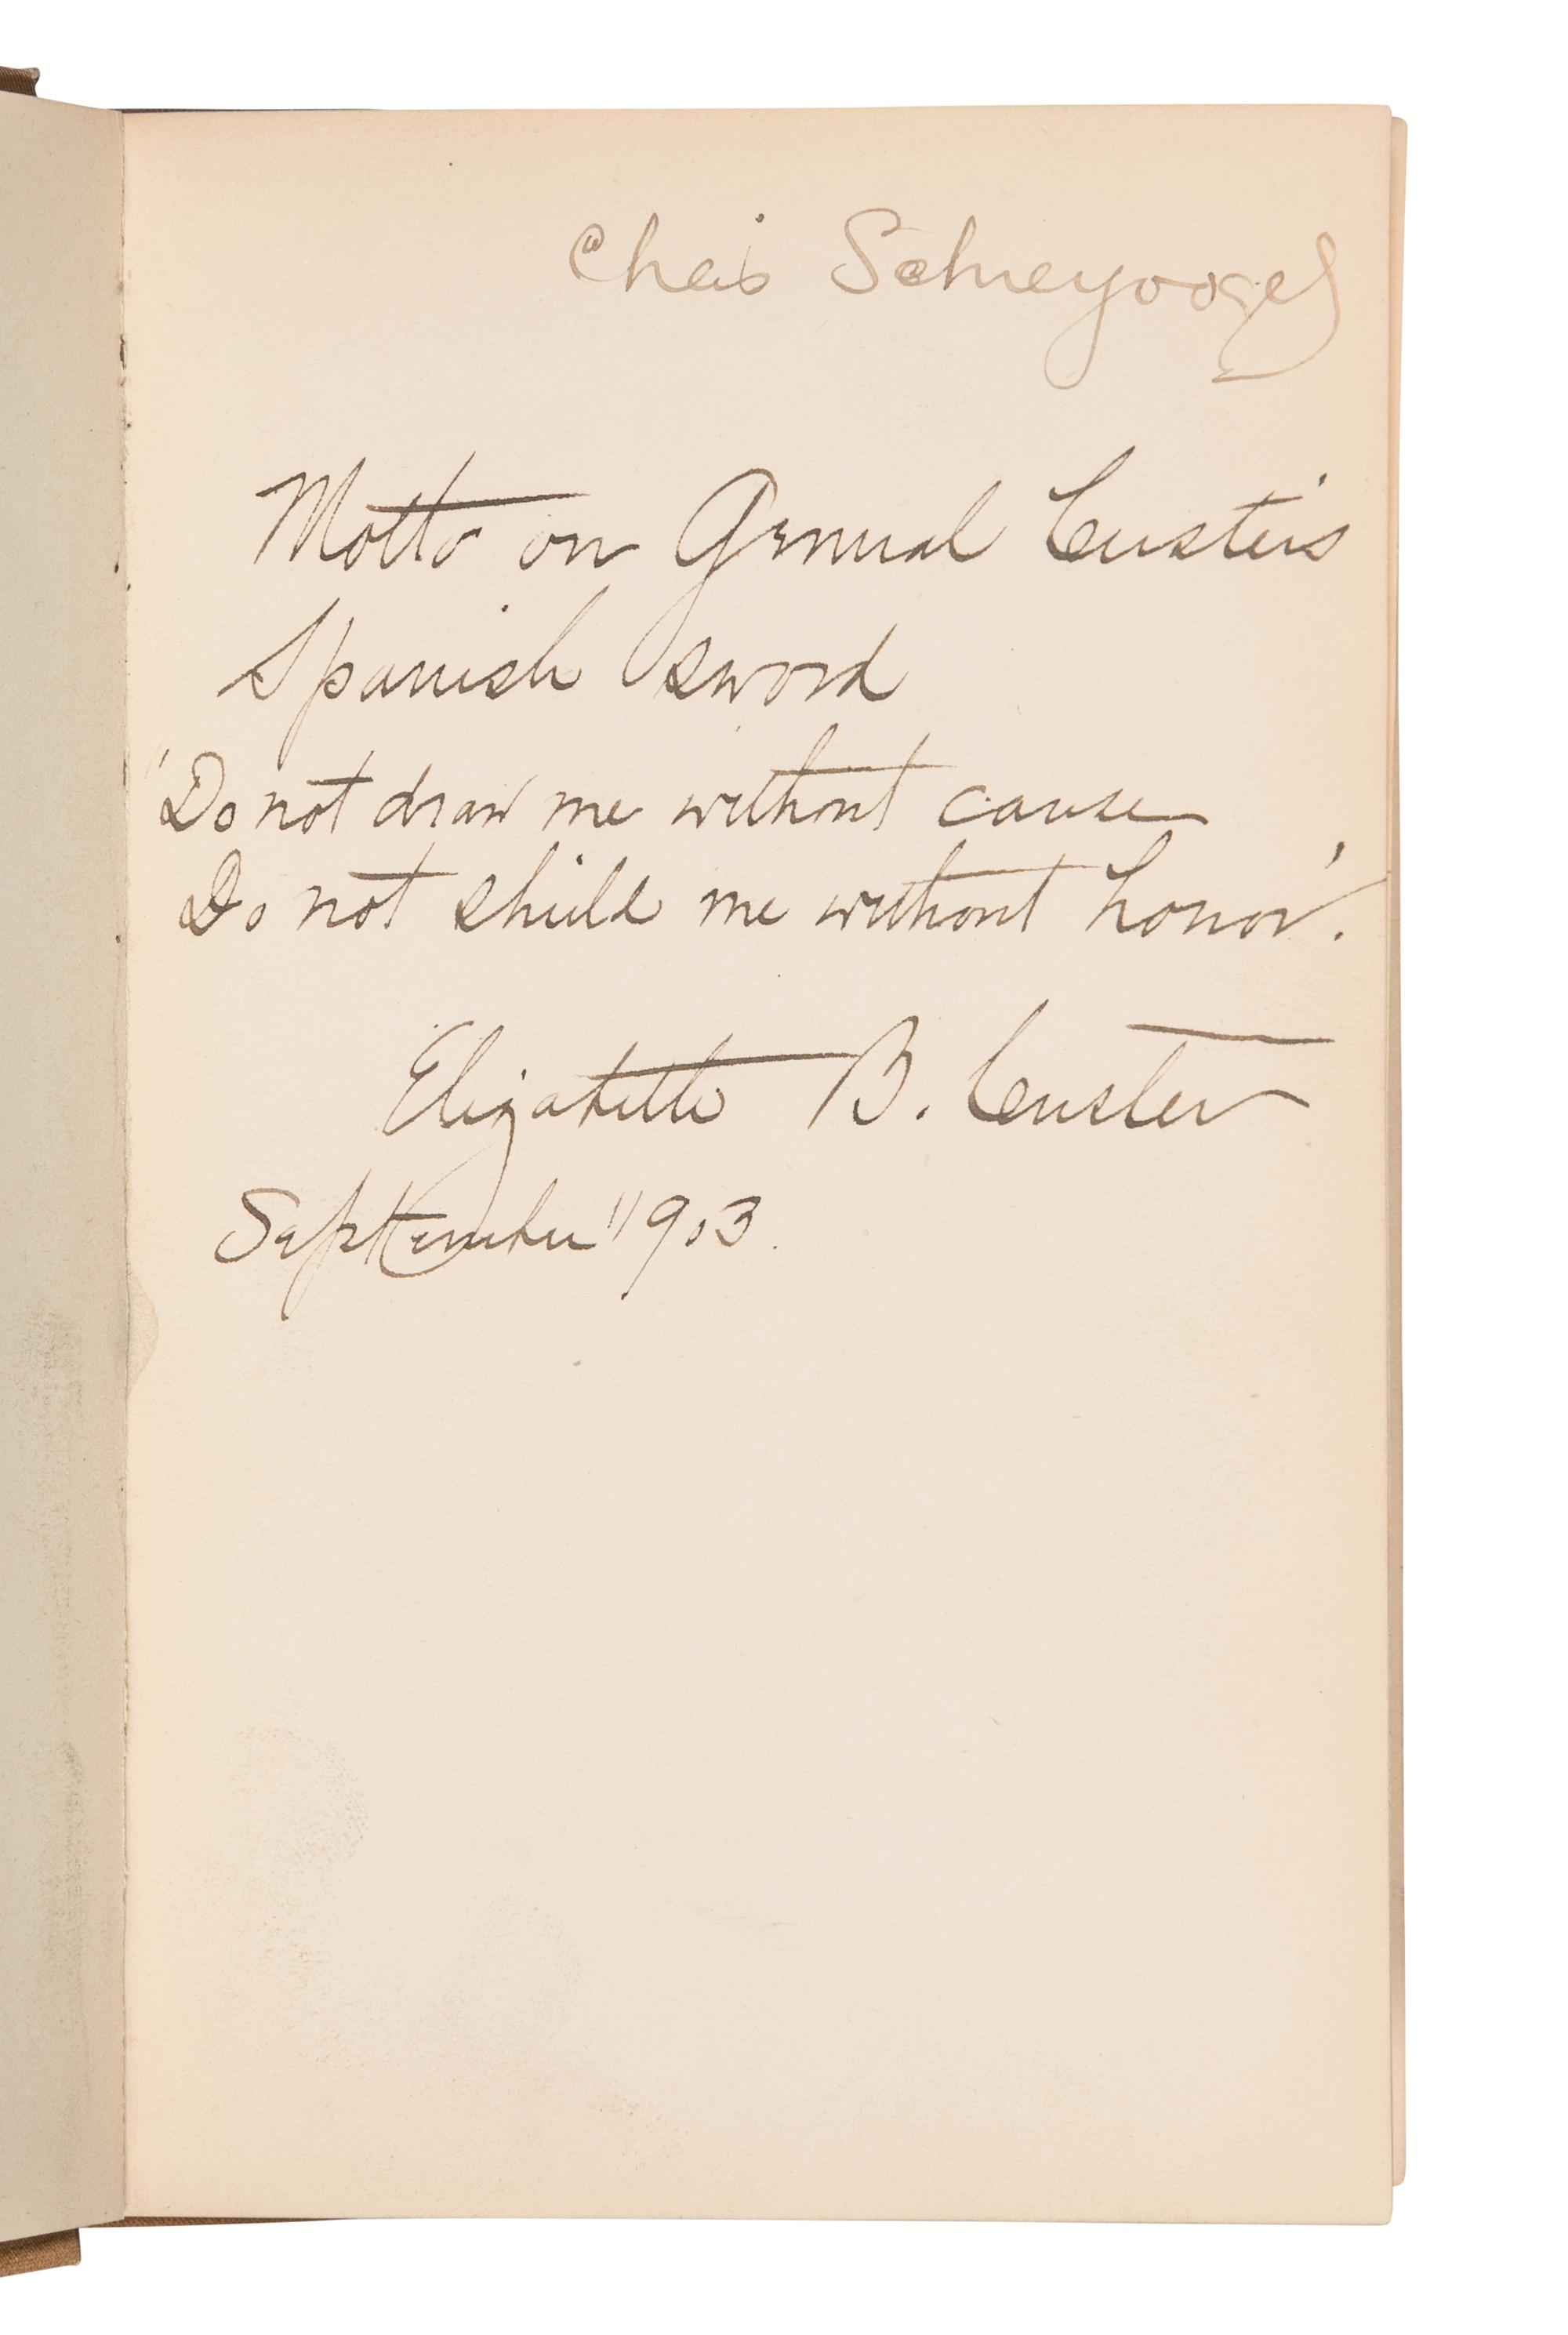 Chas Schreyvogel
Motto on General Custer's
Spanish sword
'Do not draw me without cause
Do not shield me without honor'.
Elizabeth B. Custer
September 1903.